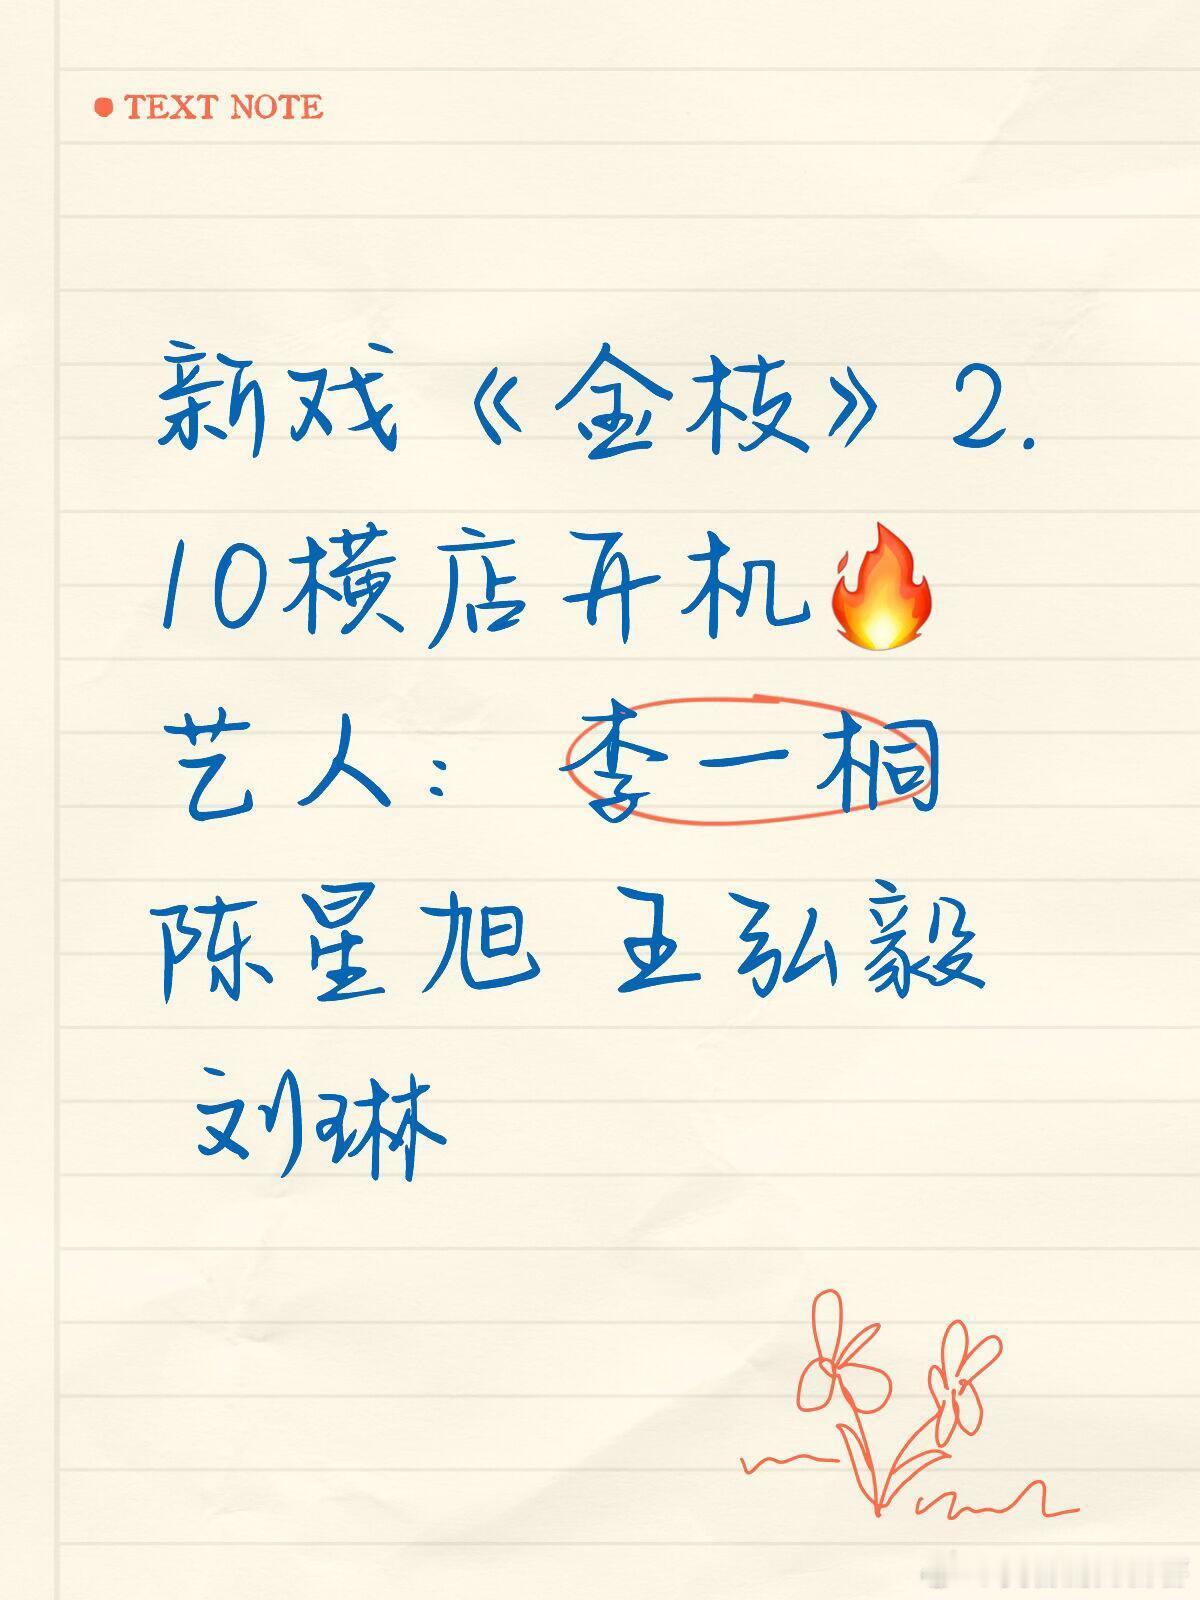 TEXT NOTE
新戏《金枝》2.
10横店开机🔥
艺人： 李一桐
陈星旭 王弘毅
刘琳